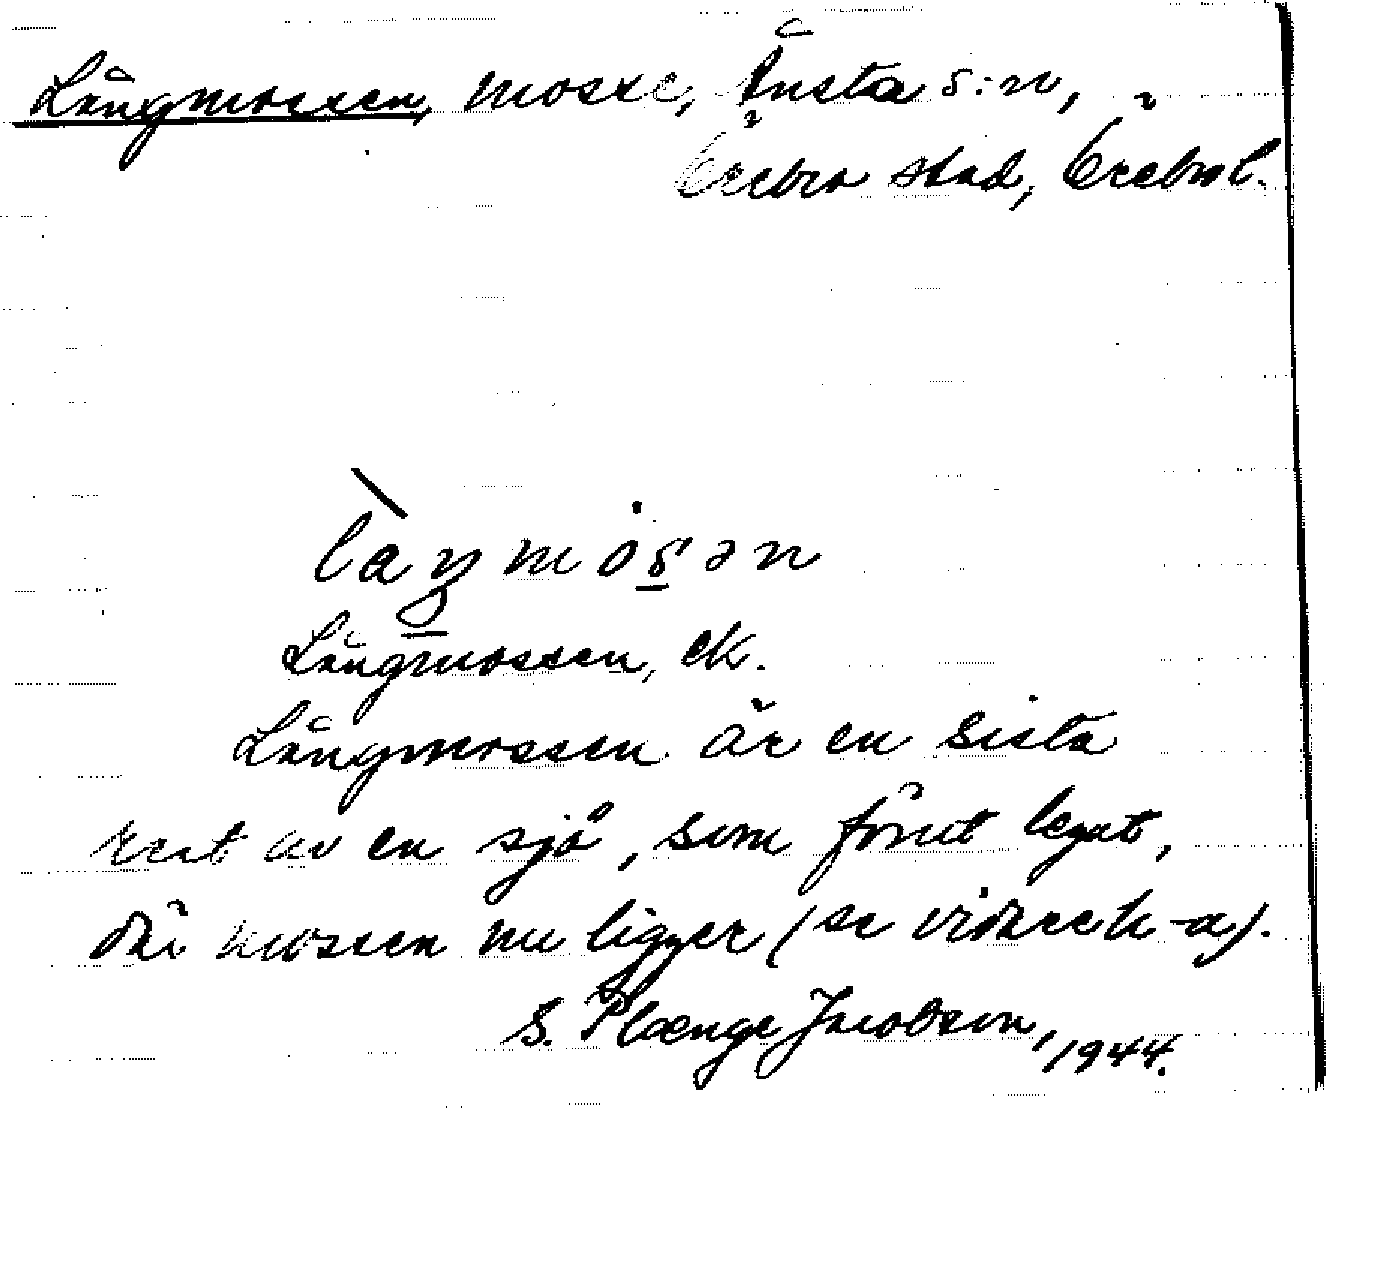 Långmossen, mosse, Ånsta s:n,
Örebro stad, Örebro l.
làŋmosən
Långmossen, ek.
Långmossen är en sista
rest av en sjö, som förut legat,
där mossen nu ligger (se vidare h-a).
S. Plænge Jacobson, 1944.